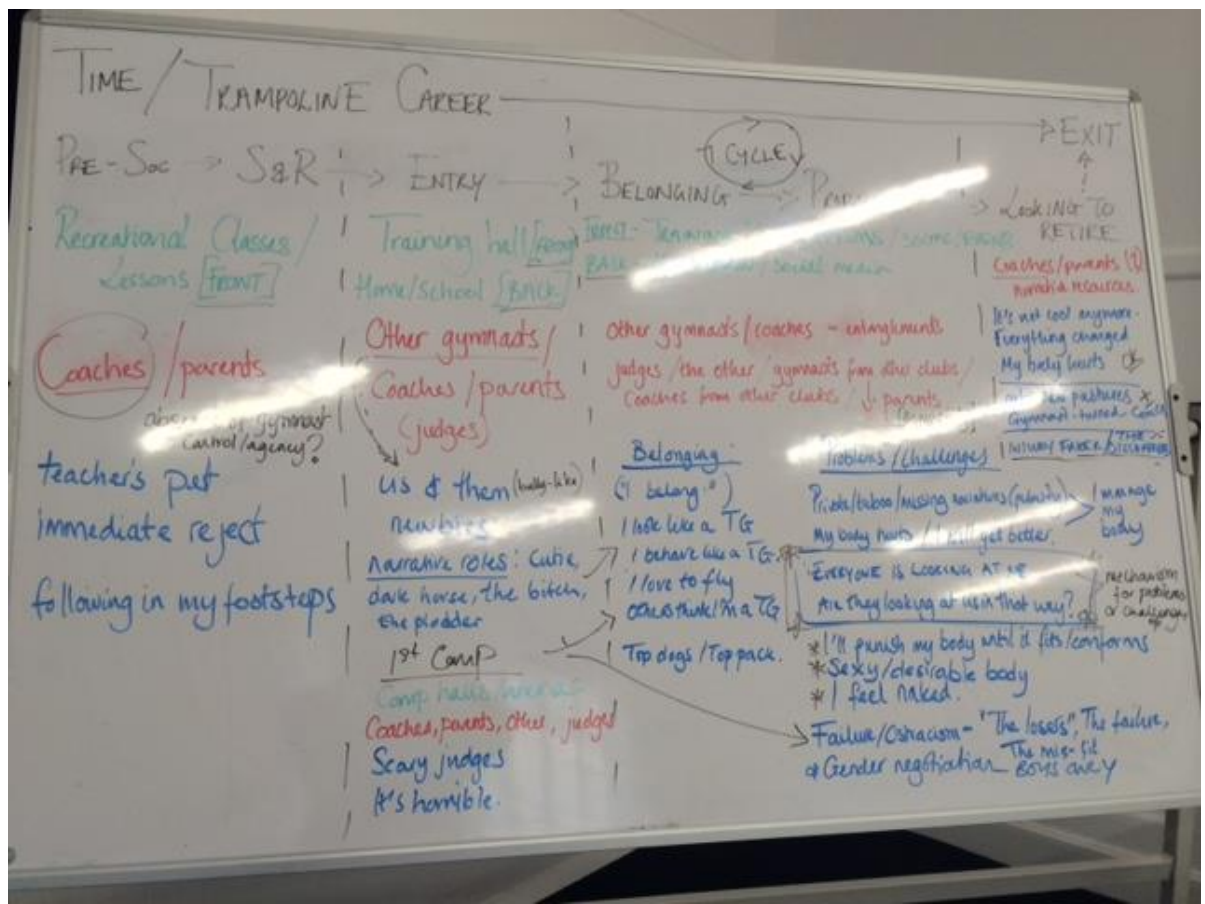 TIME / TRAMPOLINE CAREER
PRE-SOC → S&R → ENTRY → BELONGING
CYCLE
EXIT
LOOKING TO
RETIRE
Recreational Classes /
Lessons [FRONT]
Training hall /
Home/School [BACK]
FRONT -
BACK - / social media
Coaches / parents
control/agency?
teacher's pet
immediate reject
following in my footsteps
Other gymnasts /
Coaches / parents
(judges)
us & them
newbies
narrative roles: Cutie,
dark horse, the bitch,
the plodder
1st Camp
Comp halls
Coaches, parents, other, judges
Scary judges
It's horrible.
Other gymnasts / coaches - entanglements
judges / the other / gymnasts from other clubs /
Coaches from other clubs / ↓ parents
Belonging:
("I belong")
I look like a TG
I behave like a TG.
I love to fly
others think I'm a TG
Top dogs / Top pack.
Problems / Challenges
Private/taboo/missing narratives
My body hurts / I will get better.
I manage
my
body
EVERYONE IS LOOKING AT ME
Are they looking at us in that way?
mechanism
for problems
or challenges
* I'll punish my body until it fits/conforms
* Sexy/desirable body
* I feel naked.
Failure/Ostracism - "The losers", The failure,
The mis-fit
Gender negotiation BOYS ONLY
Coaches/parents
It's not cool anymore.
Everything changed
My body hurts
pastures
Gymnast-turned-coach